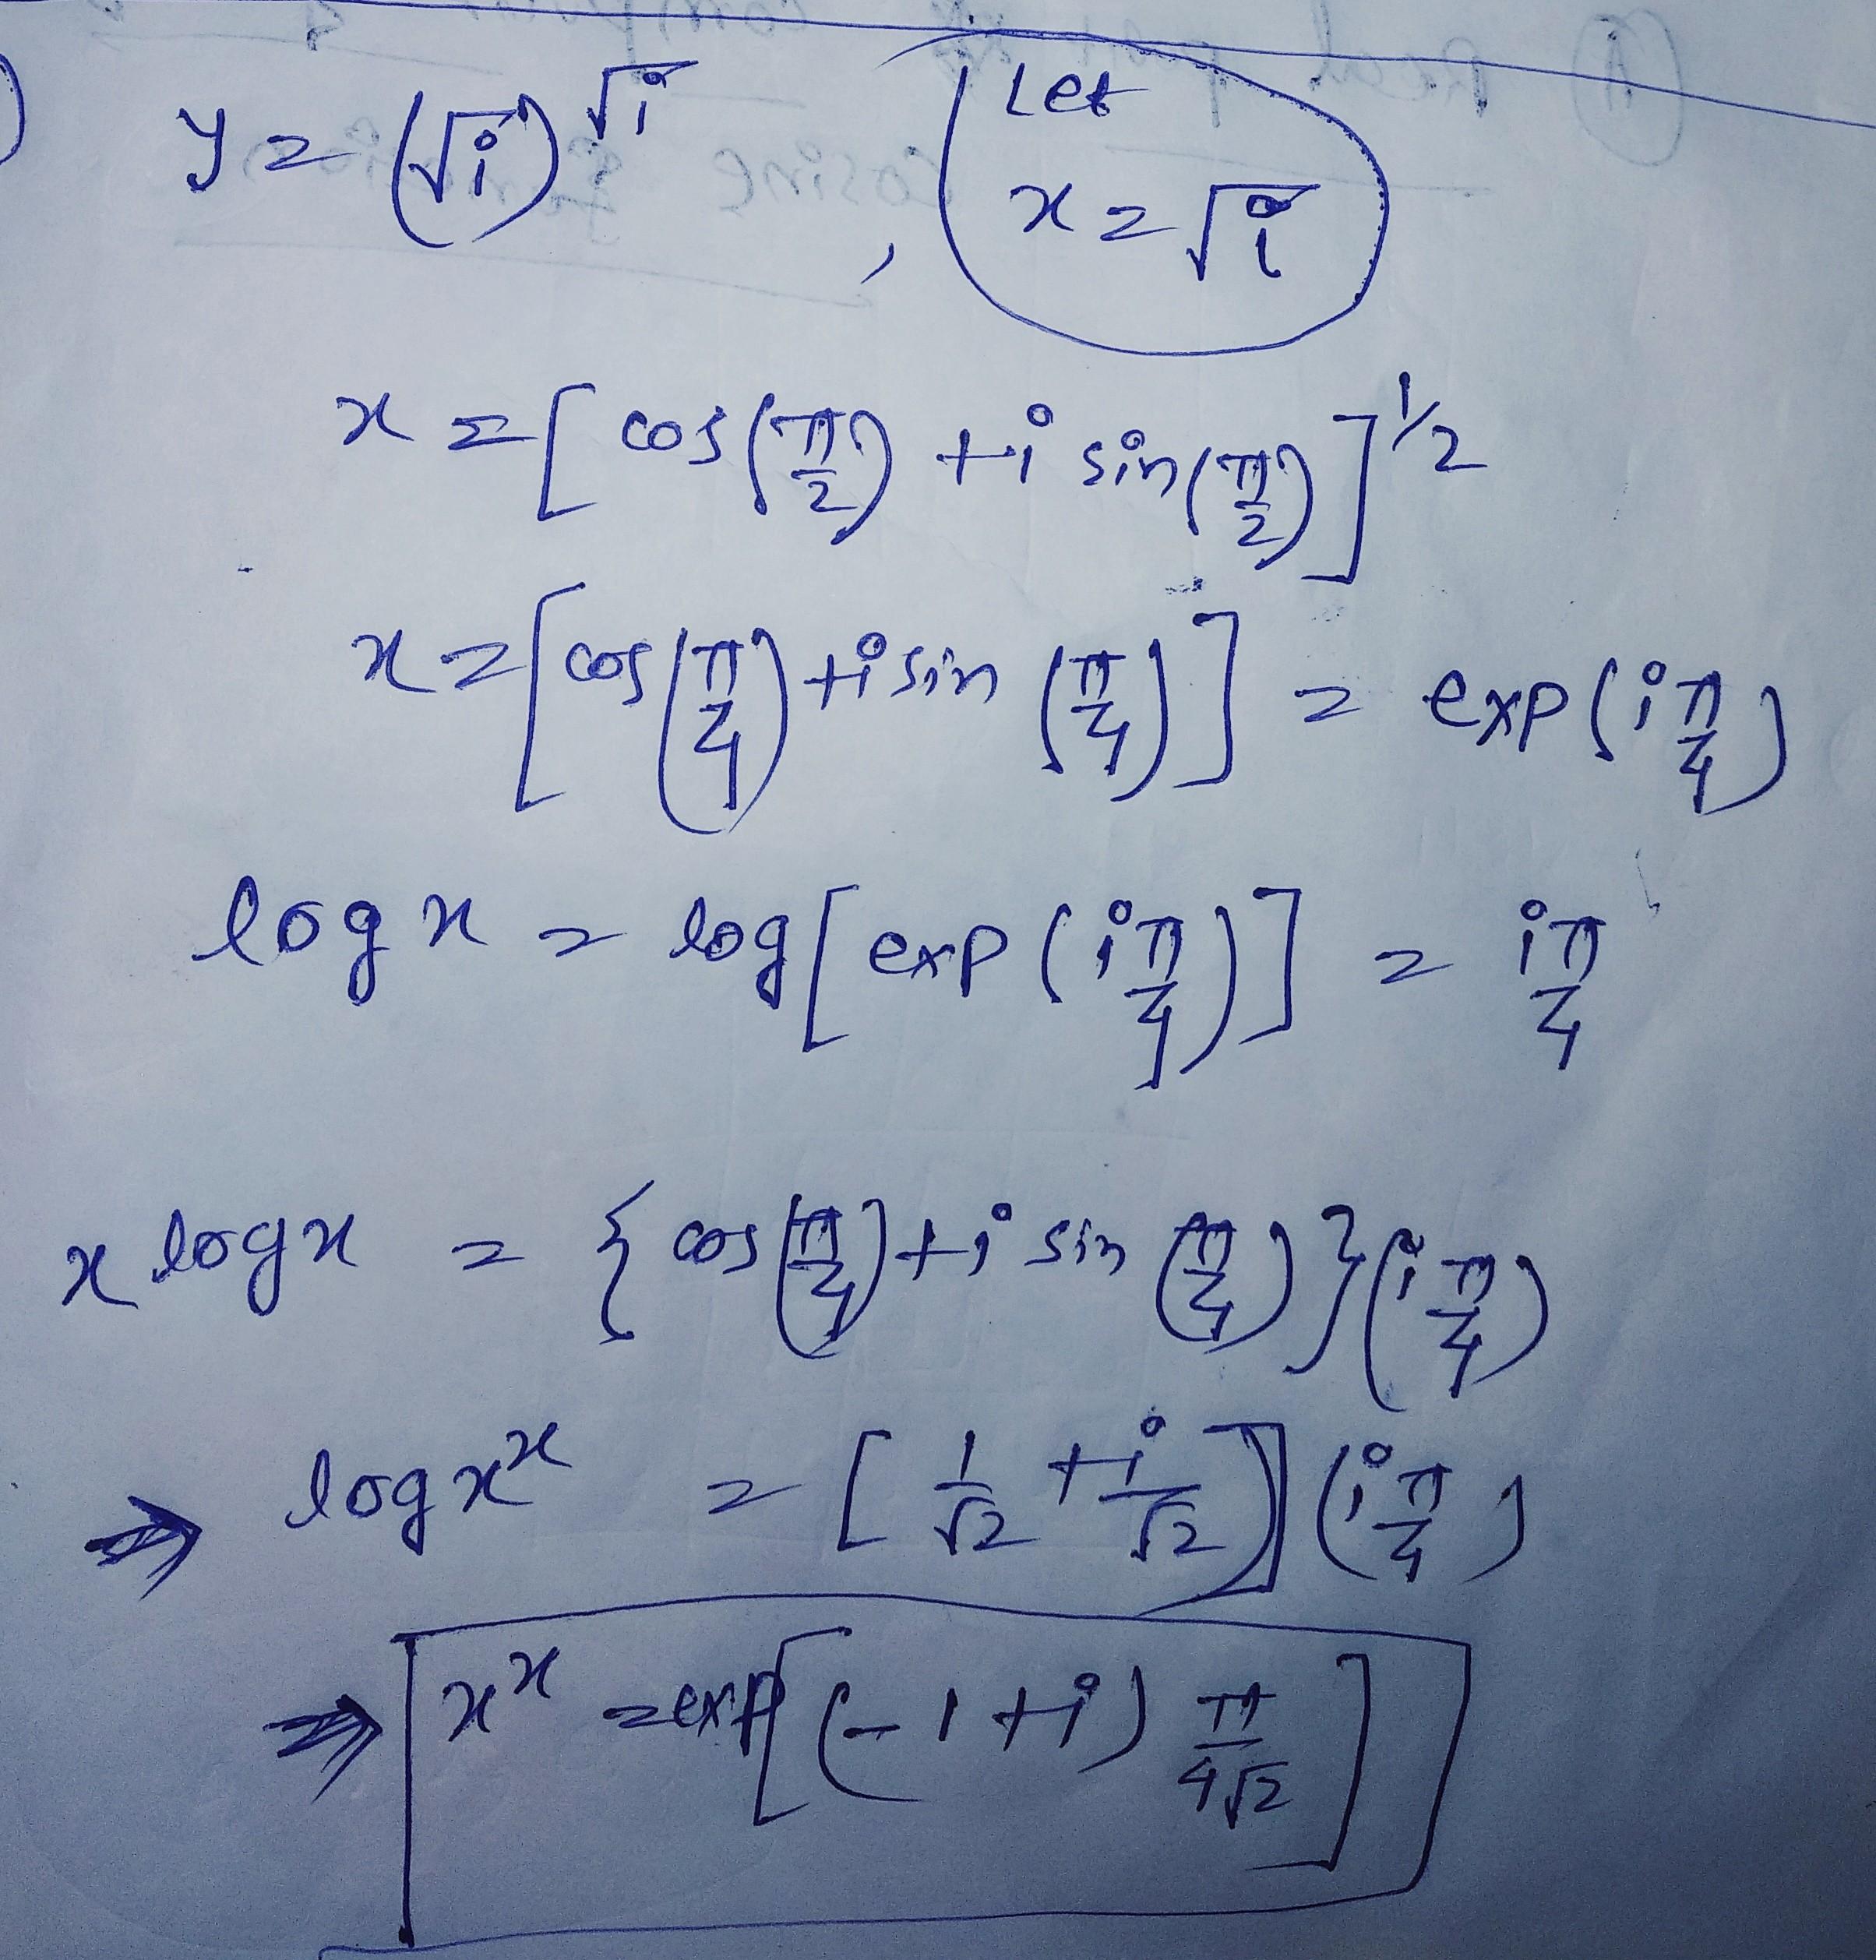 y = (√i)^√i , Let
x = √i
x = [cos(π/2) + i sin(π/2)]^1/2
x = [cos(π/4) + i sin(π/4)] = exp(iπ/4)
log x = log[exp(iπ/4)] = iπ/4
x log x = {cos(π/4) + i sin(π/4)}(iπ/4)
⇒ log x^x = [1/√2 + i/√2](iπ/4)
⇒ x^x = exp[(-1+i) π/4√2]